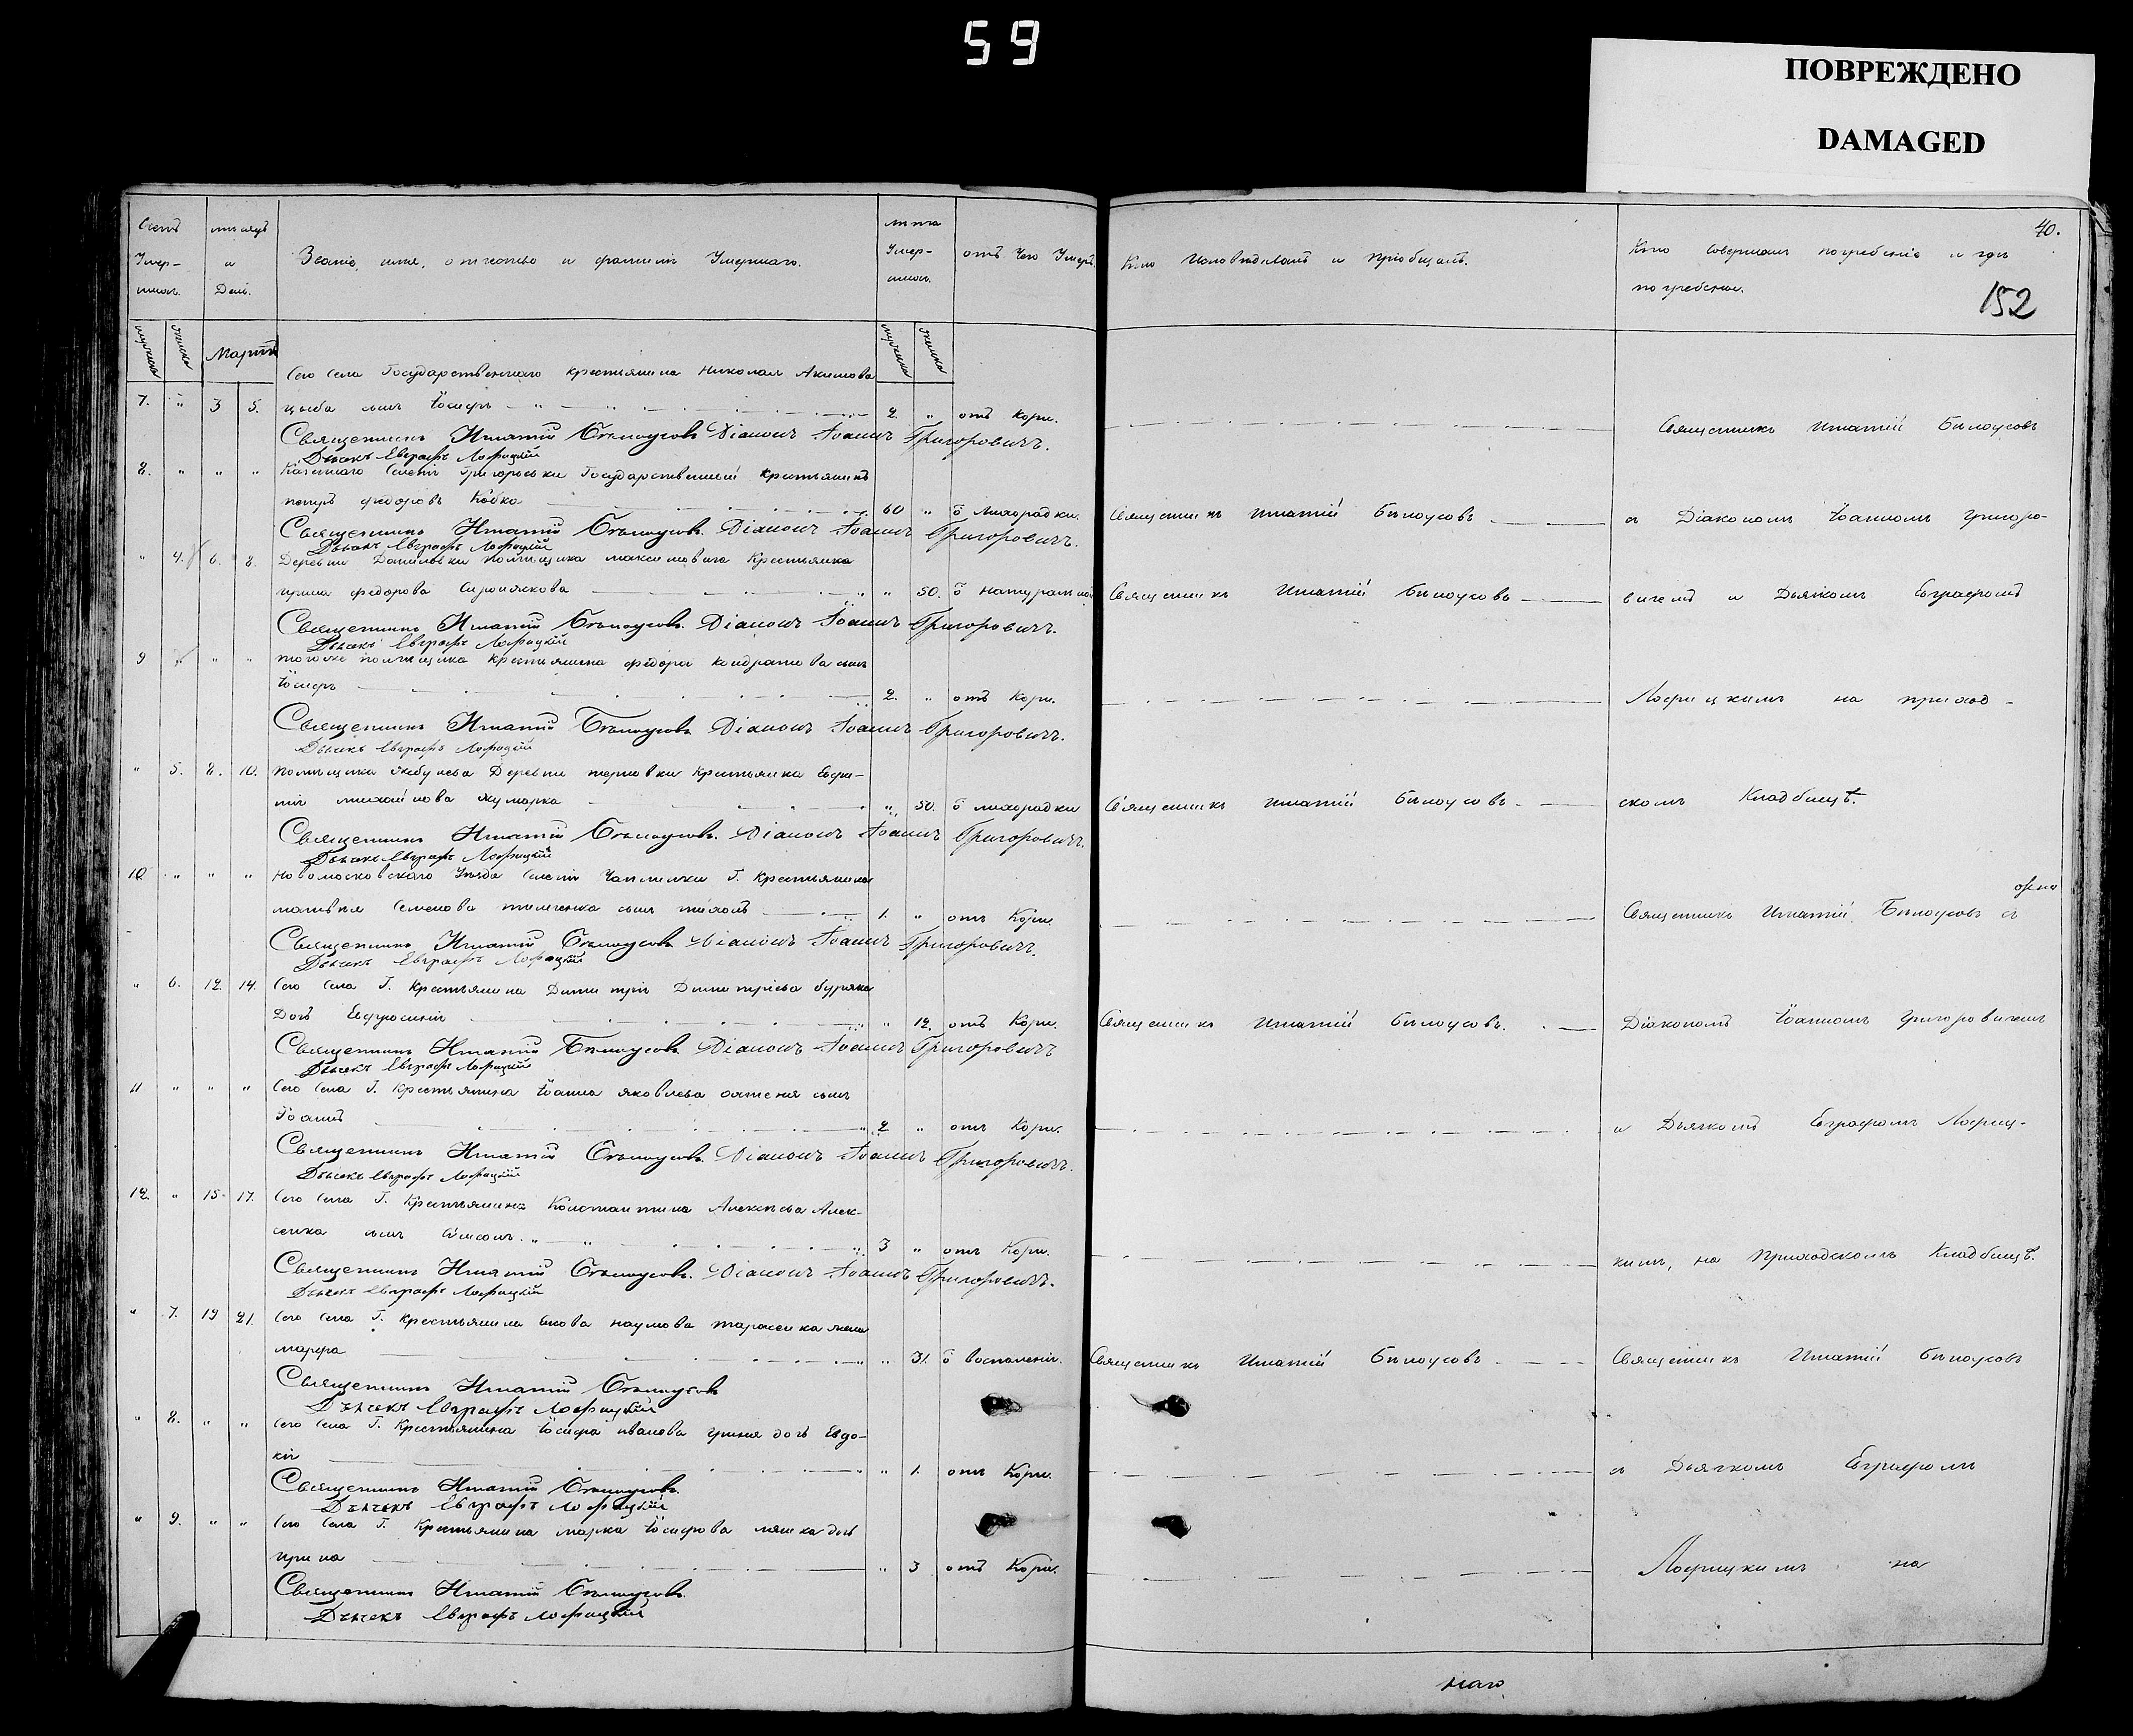 59
ПОВРЕЖДЕНО
DAMAGED
40.
152
Счетъ Умер- шихъ.
мѣсяцъ и День.
Званіе, имя, отчество и фамилія Умершаго.
лѣта Умер- шихъ.
отъ Чего Умеръ.
Кто Исповѣдывалъ и пріобщалъ.
Кто совершалъ погребеніе и гдѣ
погребены.
мужеска женска Мартъ мужеска женска
Сего Села Государственнаго крестьянина Николая Акимова
7. " 3 5. цыба сынъ Іосифъ 2. " отъ Кори. Священникъ Игнатій Бѣлоусовъ
Священникъ Игнатій Бѣлоусовъ Діаконъ Іоаннъ Григоровичъ.
Дьячекъ Евграфъ Лофицкій
8. " " " Казеннаго Селенія Григорьевки Государственный Крестьянинъ
петръ федоровъ Кобка 60 " ѿ Лихорадки. Священникъ Игнатій Бѣлоусовъ съ Діакономъ Іоанномъ Григоро-
Священникъ Игнатій Бѣлоусовъ. Діаконъ Іоаннъ Григоровичъ.
Дьячекъ Евграфъ Лофицкій
" 4. 6. 8. Деревни Даниловки помѣщика максимовича Крестьянка
ирина федорова " 50. ѿ натуральной Священникъ Игнатій Бѣлоусовъ вичемъ и Дьячкомъ Евграфомъ
Священникъ Игнатій Бѣлоусовъ. Діаконъ Іоаннъ Григоровичъ.
Дьячекъ Евграфъ Лофицкій
9 " " " тогоже помѣщика крестьянина федора кондратова сынъ
Іосифъ 2. " отъ Кори. Лофицкимъ на приход-
Священникъ Игнатій Бѣлоусовъ Діаконъ Іоаннъ Григоровичъ.
Дьячекъ Евграфъ Лофицкій
" 5. 8. 10. помѣщика Деревни терновки Крестьянка Евфи-
мія михайлова " 50. ѿ лихорадки Священникъ Игнатій Бѣлоусовъ скомъ Кладбищѣ.
Священникъ Игнатій Бѣлоусовъ. Діаконъ Іоаннъ Григоровичъ.
Дьячекъ Евграфъ Лофицкій
10. " " " Новомосковскаго Уѣзда Селенія Чаплинки Г. Крестьянина
матвѣя Семенова сынъ 1. " отъ Кори. Священникъ Игнатій Бѣлоусовъ съ
Священникъ Игнатій Бѣлоусовъ Діаконъ Іоаннъ Григоровичъ.
Дьячекъ Евграфъ Лофицкій
" 6. 12. 14. Сего Села Г. Крестьянина Димитрія Димитріева буряка
Дочь Евфросинія " 12. отъ Кори. Священникъ Игнатій Бѣлоусовъ. Діакономъ Іоанномъ Григоровичемъ
Священникъ Игнатій Бѣлоусовъ Діаконъ Іоаннъ Григоровичъ
Дьячекъ Евграфъ Лофицкій
11 " " " Сего Села Г. Крестьянина Іоанна яковлева сынъ
Іоаннъ 2 " отъ Кори. и Дьячкомъ Евграфомъ Лофиц-
Священникъ Игнатій Бѣлоусовъ. Діаконъ Іоаннъ Григоровичъ.
Дьячекъ Евграфъ Лофицкій
12. " 15. 17. Сего Села Г. Крестьянина Константина Алексѣева Алек-
сенка сынъ Симеонъ. 3 " отъ Кори. кимъ, на Приходскомъ Кладбищѣ.
Священникъ Игнатій Бѣлоусовъ. Діаконъ Іоаннъ Григоровичъ.
Дьячекъ Евграфъ Лофицкій
" 7. 19 21. Сего Села Г. Крестьянина якова наумова тарасенка жена
марфа " 31. ѿ воспаленія. Священникъ Игнатій Бѣлоусовъ Священникъ Игнатій Бѣлоусовъ
Священникъ Игнатій Бѣлоусовъ
Дьячекъ Евграфъ Лофицкій
" 8. " " Сего Села Г. Крестьянина Іосифа иванова дочь Евдо-
кія " 1. отъ Кори. съ Дьячкомъ Евграфомъ
Священникъ Игнатій Бѣлоусовъ.
Дьячекъ Евграфъ Лофицкій
" 9. " " Сего Села Г. Крестьянина марка Іосифова дочь
ирина " 3 отъ Кори. Лофицкимъ на
Священникъ Игнатій Бѣлоусовъ.
Дьячекъ Евграфъ Лофицкій